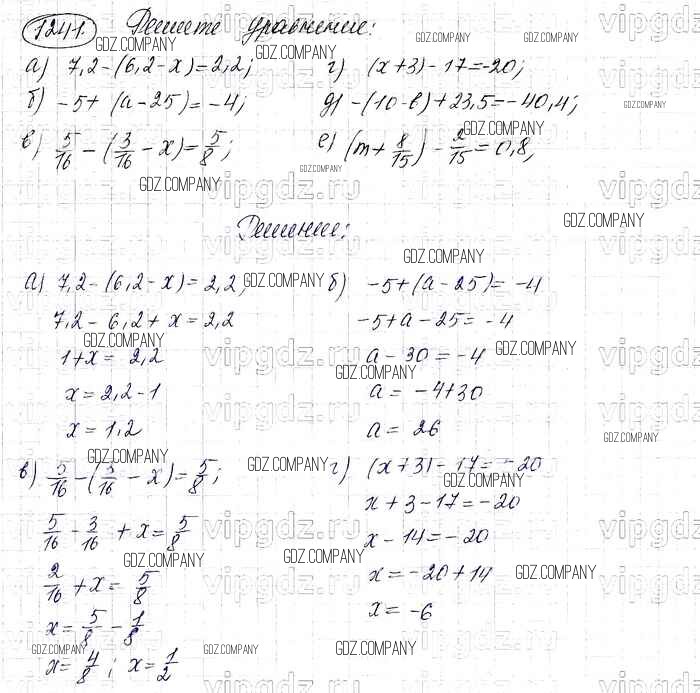 1241. Решите уравнение:
а) 7,2-(6,2-x)=2,2; г) (x+3)-17=-20;
б) -5+(a-25)=-4; д) -(10-в)+23,5=-40,4;
в) 5/16-(3/16-x)=5/8; е) (m+8/15)-2/15=0,8;
Решение:
а) 7,2-(6,2-x)=2,2; б) -5+(a-25)=-4
7,2-6,2+x=2,2 -5+a-25=-4
1+x=2,2 a-30=-4
x=2,2-1 a=-4+30
x=1,2 a=26
в) 5/16-(3/16-x)=5/8; г) (x+3)-17=-20
5/16-3/16+x=5/8 x+3-17=-20
2/16+x=5/8 x-14=-20
x=5/8-1/8 x=-20+14
x=4/8; x=1/2 x=-6
GDZ.COMPANY
vipgdz.ru